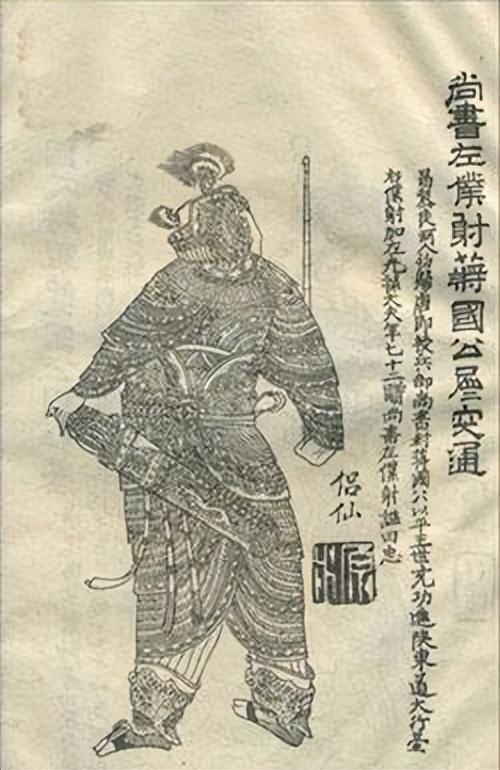 尚書左僕射蔣國公屈突通
昌黎人初歸唐即授兵部尚書封蔣國公以平王世充功進陝東道大行臺
右僕射加左光祿大夫年七十二贈尚書左僕射諡曰忠
侶仙